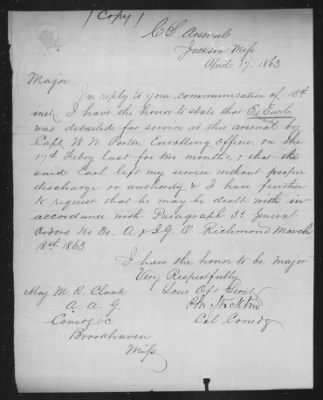 (Copy)
C S Arsenal
Jackson Miss
April 17. 1863
Major
In reply to your communication of 10th
inst, I have the honor to state that E. Earl
was detailed for service at this arsenal by
Capt W. W. Porter Enrolling officer, on the
17th Feby last for two months, & that the
said Earl left my service without proper
discharge or authority, & I have further
to request that he may be dealt with in
accordance with Paragraph 3d General
Orders No 30. A & I G O Richmond March
18th 1863
I have the honor to be major
Very Respectfully
Your Obt Servt
Maj M. R. Clark
P M Stockton
A. A. G.
Col Comdg
Comdg &c
Brookhaven
Miss